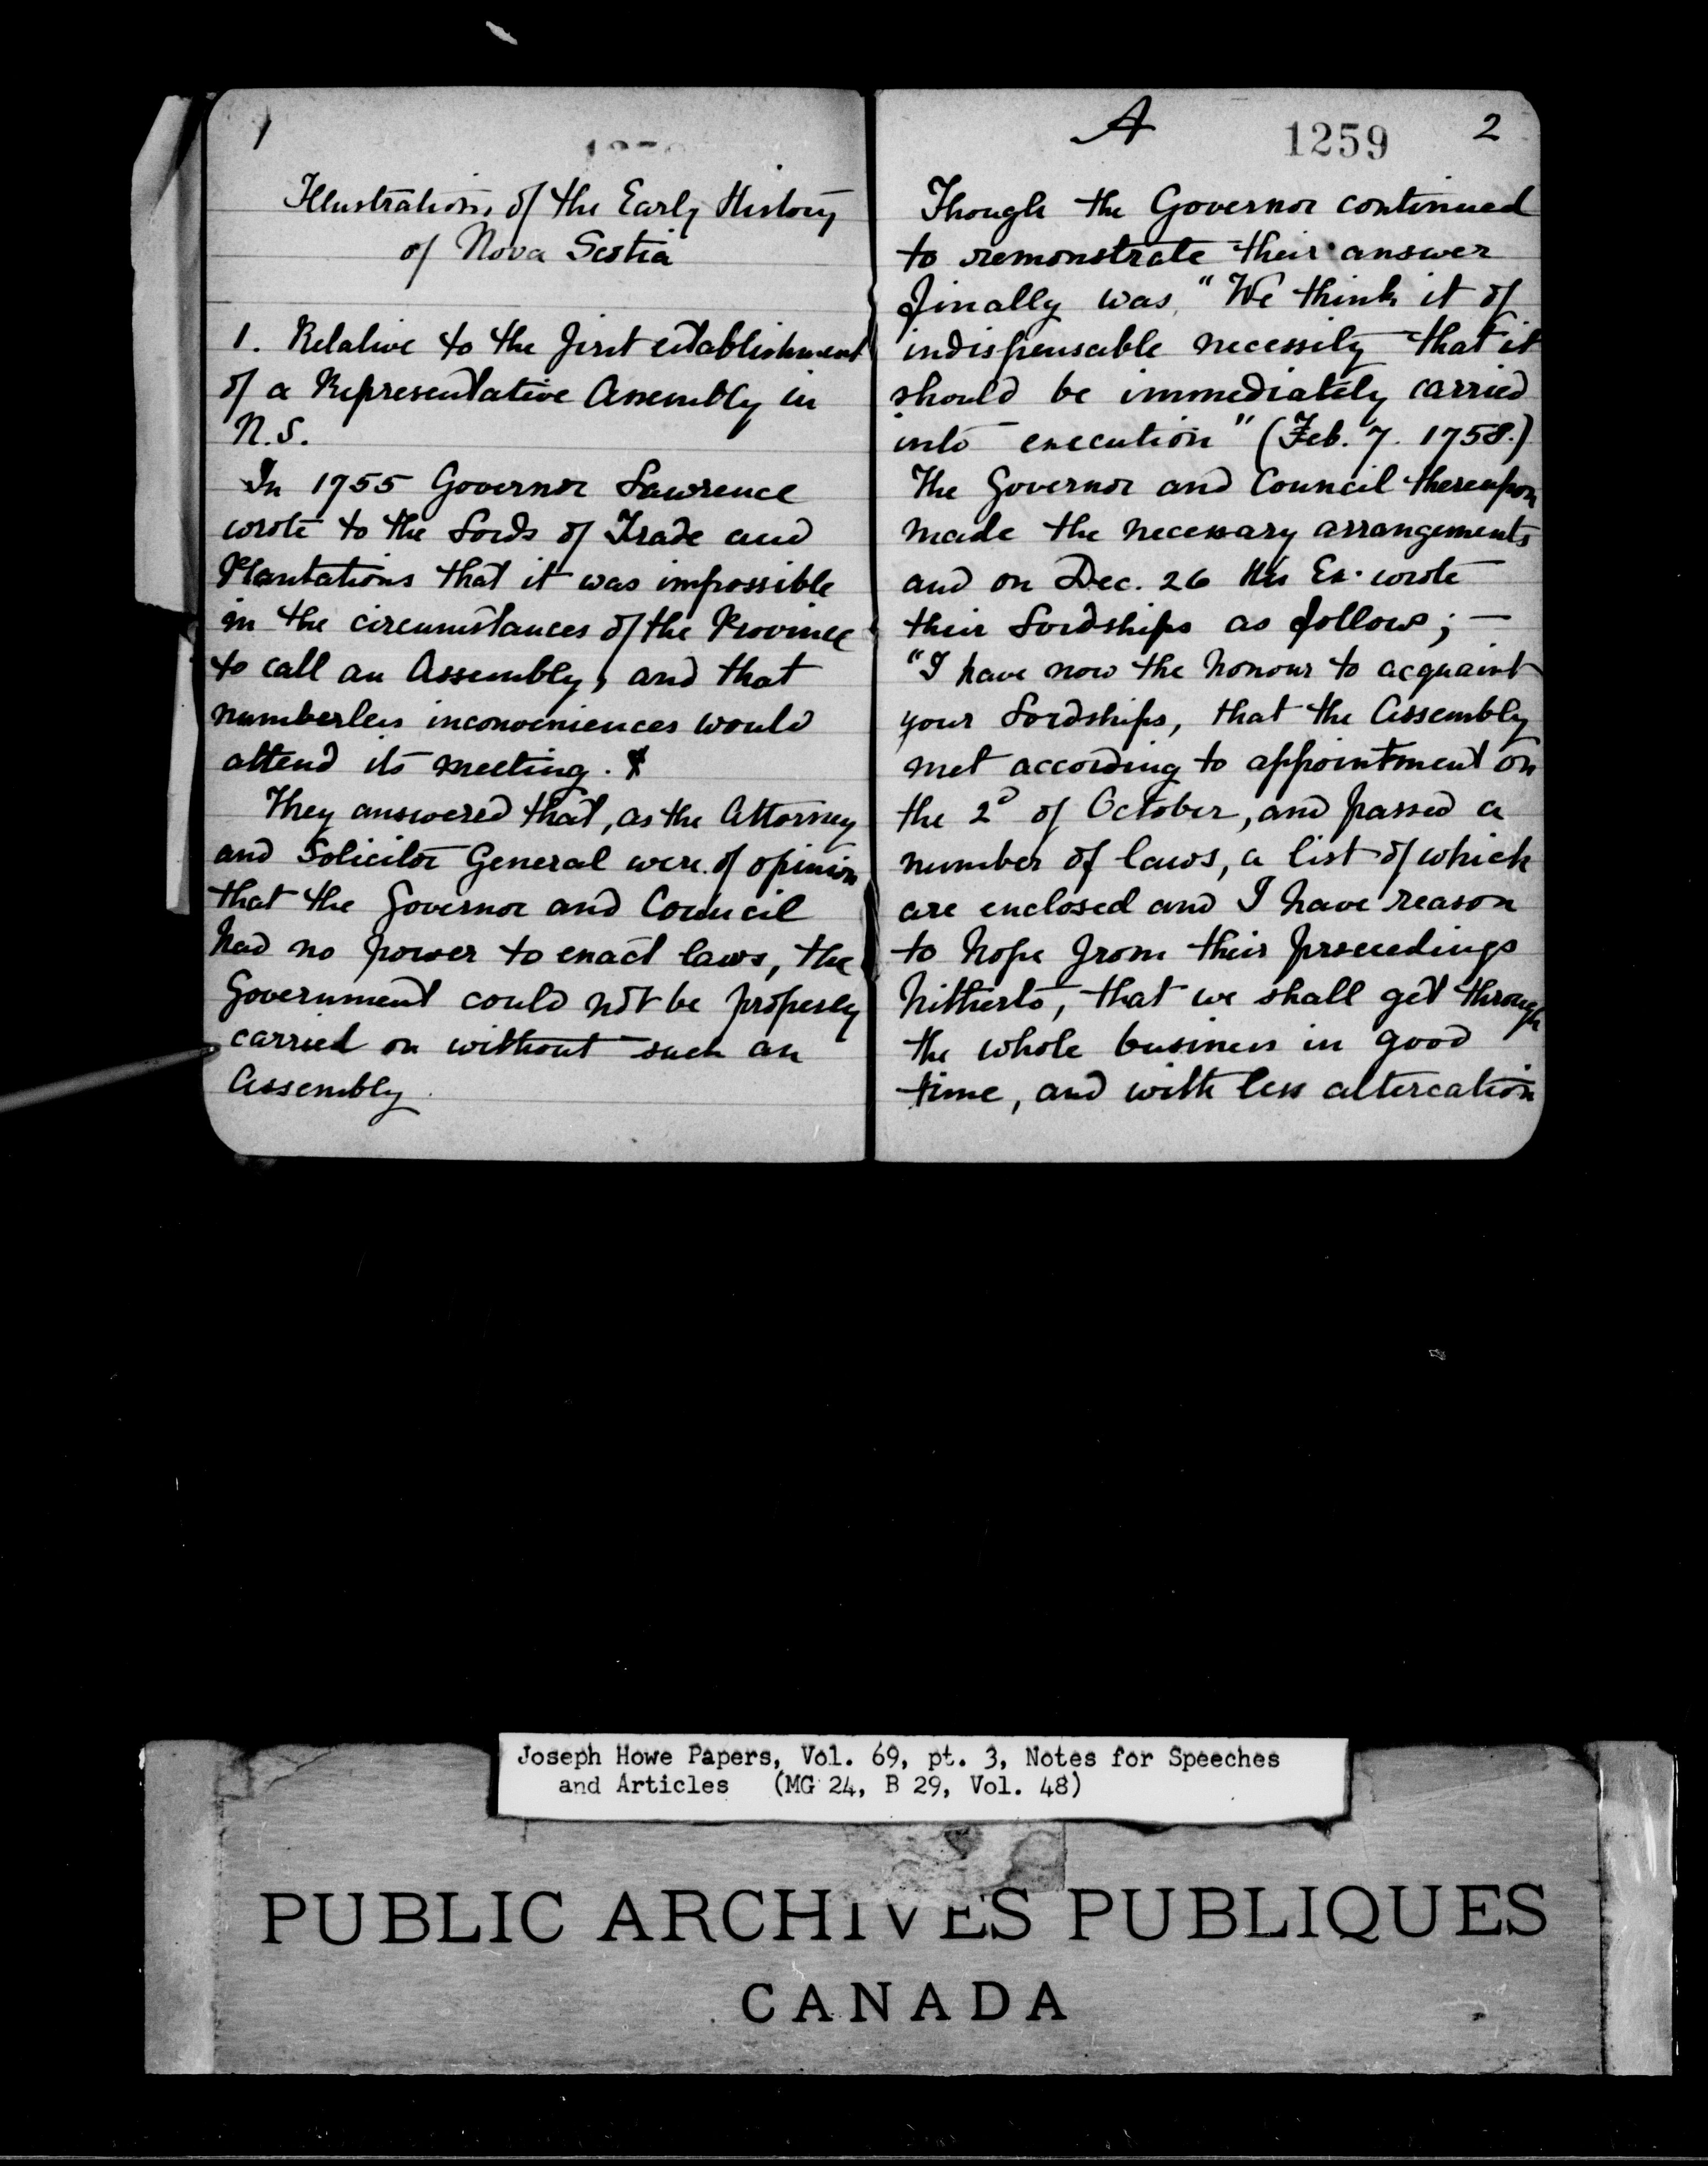 1
Illustrations of the Early History
of Nova Scotia
1. Relative to the first establishment
of a Representative Assembly in
N.S.
In 1755 Governor Lawrence
wrote to the Lords of Trade and
Plantations that it was impossible
in the circumstances of the Province
to call an Assembly, and that
numberless inconveniences would
attend its meeting.
They answered that, as the Attorney
and Solicitor General were of opinion
that the Governor and Council
had no power to enact laws, the
Government could not be properly
carried on without such an
Assembly.
A 1259 2
Though the Governor continued
to remonstrate their answer
finally was, "We think it of
indispensable necessity that it
should be immediately carried
into execution" (Feb. 7. 1758.)
The Governor and Council thereupon
made the necessary arrangements
and on Dec. 26 His Ex. wrote
their Lordships as follows; —
"I have now the honour to acquaint
your Lordships, that the Assembly
met according to appointment on
the 2d of October, and passed a
number of laws, a list of which
are enclosed and I have reason
to hope from their proceedings
hitherto, that we shall get through
the whole business in good
time, and with less altercation
Joseph Howe Papers, Vol. 69, pt. 3, Notes for Speeches
and Articles (MG 24, B 29, Vol. 48)
PUBLIC ARCHIVES PUBLIQUES
CANADA